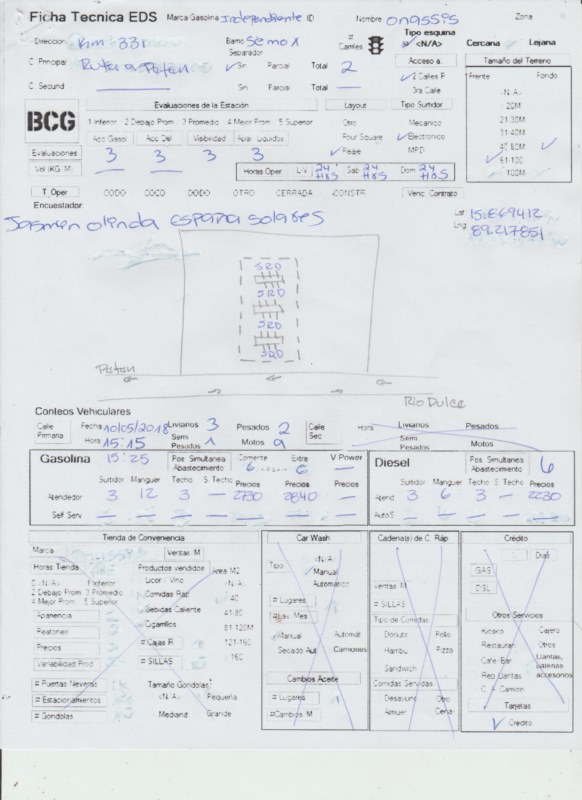 Ficha Tecnica EDS Marca Gasolina Independiente ID Nombre Onassis Zona
Direccion Km 331 Barrio Semox # Carriles Tipo esquina <N/A> Cercana Lejana
Separador
C Principal Ruta a Peten Sin Parcial Total 2 Acceso a Tamaño del Terreno
2 Calles P Frente Fondo
C Secund Sin Parcial Total 3ra Calle <N/A>
20M
BCG Evaluaciones de la Estación Layout Tipo Surtidor 21-30M
1 Inferior 2 Debajo Prom 3 Promedio 4 Mejor Prom 5 Superior Otro Mecanico 31-40M
Acc Gasol Acc Del Visibilidad Apar Liquidos Four Square Electronico
Evaluaciones 3 3 3 3 Peine MPD 61-100
Vol (KG M) Horas Oper L-V 24 HRS Sab 24 HRS Dom 24 HRS 100M
T_Oper CODO COCO DODO OTRO CERRADA CONSTR Venc Contrato
Encuestador
Jasmin olinda España solares
Lat 15.869412
Lng 89.217851
SRD
SRD
SRD
SRD
Peten
Rio Dulce
Conteos Vehiculares
Calle Primaria Fecha 10/05/2018 Livianos 3 Pesados 2 Calle Sec Hora Livianos Pesados
Hora 15:15 Semi Pesados 1 Motos 9 Semi Pesados Motos
Gasolina 15:25 Pos Simultanea Abastecimiento Corriente 6 Extra 6 V Power — Diesel Pos Simultanea Abastecimiento 6
Surtidor Manguer Techo S Techo Precios Precios Precios Surtidor Manguer Techo S Techo Precios
Atendedor 3 12 3 — 2730 2840 — Atend 3 6 3 — 2230
Self Serv — Auto S
Tienda de Conveniencia Car Wash Cadena(s) de C. Ráp Crédito
Marca Ventas M Tipo <N/A> Duis
Horas Tienda Productos vendidos Area M2 Manual GAS
<N/A> 1 Inferior Licor Vino <N/A> Automatico DSL
2 Debajo Prom 3 Promedio Comidas Rap 40 # Lugares Ventas M
4 Mejor Prom 5 Superior Bebidas Caliente 41-80 # SILLAS Otros Servicios
Apariencia Cigarrillos 81-120M Manual Automat Tipo de Comidas Kiosko Cajero
Peatones # Cajas R 121-160 Secado Aut Camiones Donuts Pollo Restauran Otros
Precios # SILLAS 160 Hambu Pizza Cafe Bar Llantas, baterias accesorios
Variabilidad Prod Cambios Aceite Sandwich Rep Llantas
# Puertas Neveras Tamaño Gondolas # Lugares Comidas Servidas
# Estacionamientos <N/A> Pequeña #Cambios M Desayuno Tarjetas
# Gondolas Mediana Grande Almuer Cena Crédito